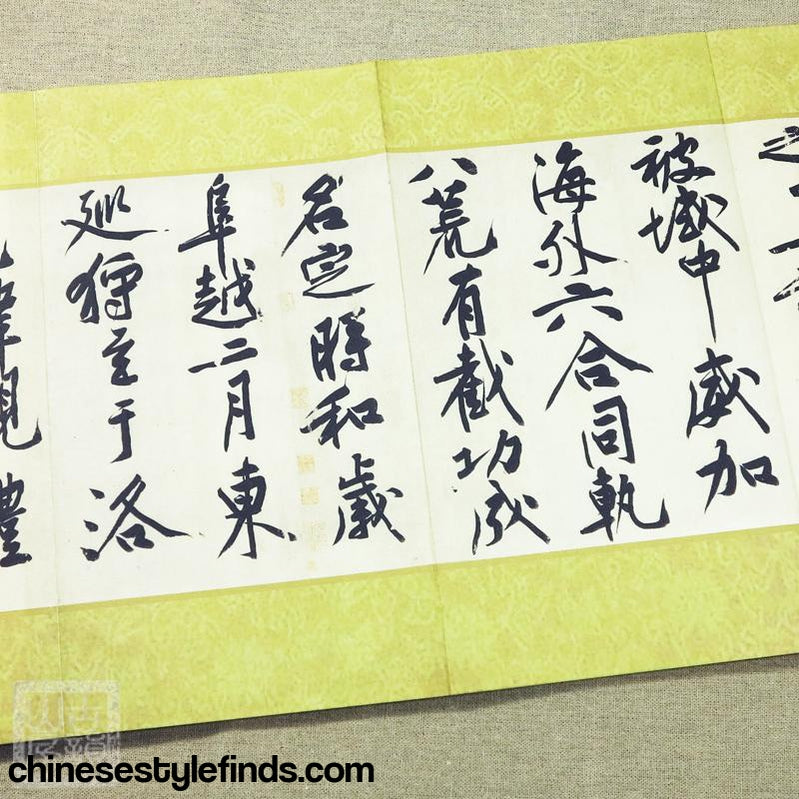 之
被域中威加
海外六合同軌
八荒有截功成
名定時和歲
阜越二月東
巡狩至于洛
觀禮
chinesestylefinds.com